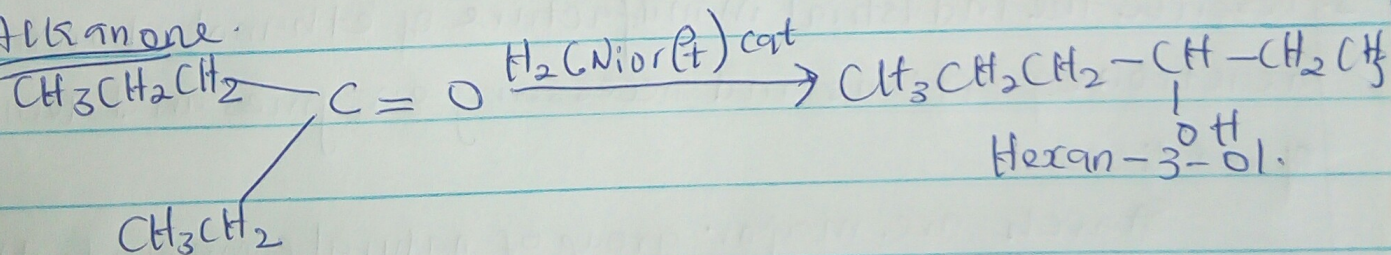 Alkanone.
CH3CH2CH2
C = O
H2 (Ni or Pt) cat
CH3CH2CH2 - CH - CH2CH3
OH
Hexan - 3 - ol.
CH3CH2